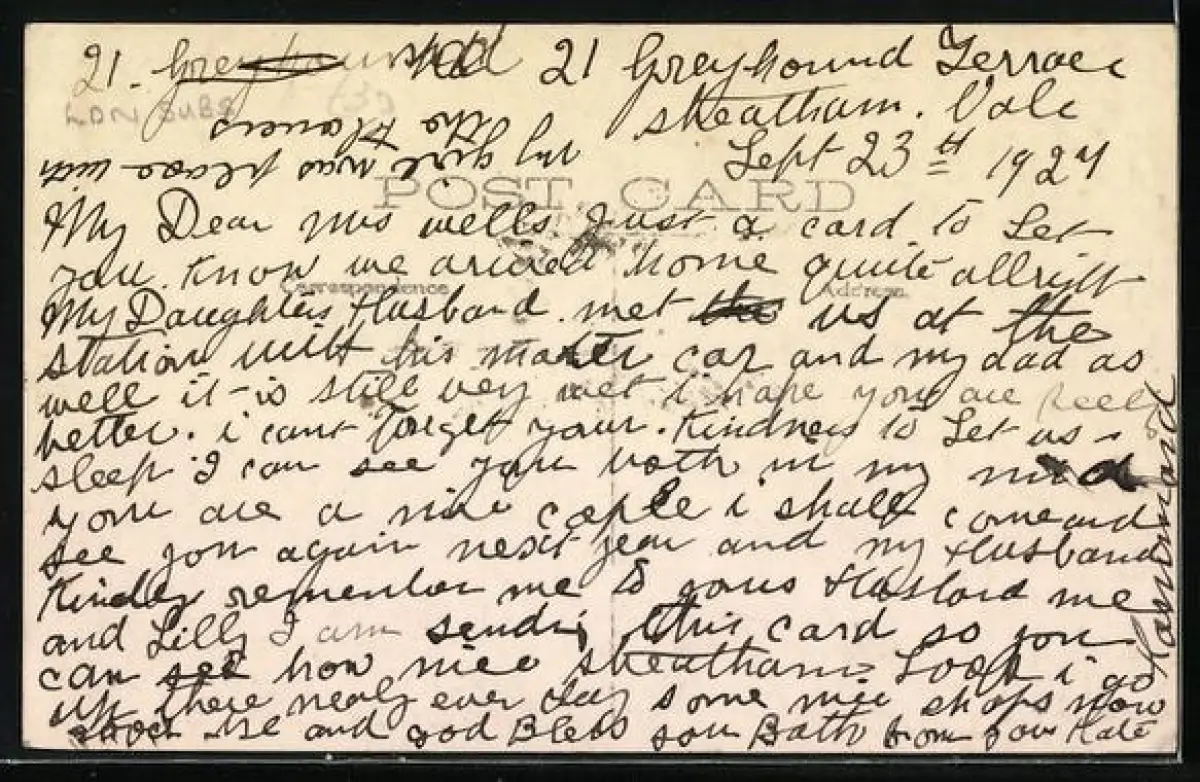 21. 21 Greyhound Terrace
LON SUBS
streatham. Vale
Sept 23rd 1927
my girl was please with
the flowers
POST CARD
Correspondence Address
My Dear mrs wells. Just a card. to Let
you. Know we arived home quite allright
My Daughters Husband. met us at the
station with his moter car and my dad as
well it is still very wet i hope you are feel
better. i cant forget your. Kindness to Let us
sleep I can see you both in my mind
you are a nice cople i shall come and
see you again next year and my Husband
Kindley remember me to yours Husband me
and Lilly I am sending this card so you
can see how nice streatham Look i go
up there nearly ever day some nice shops now
and god Bless you Both from your Kate